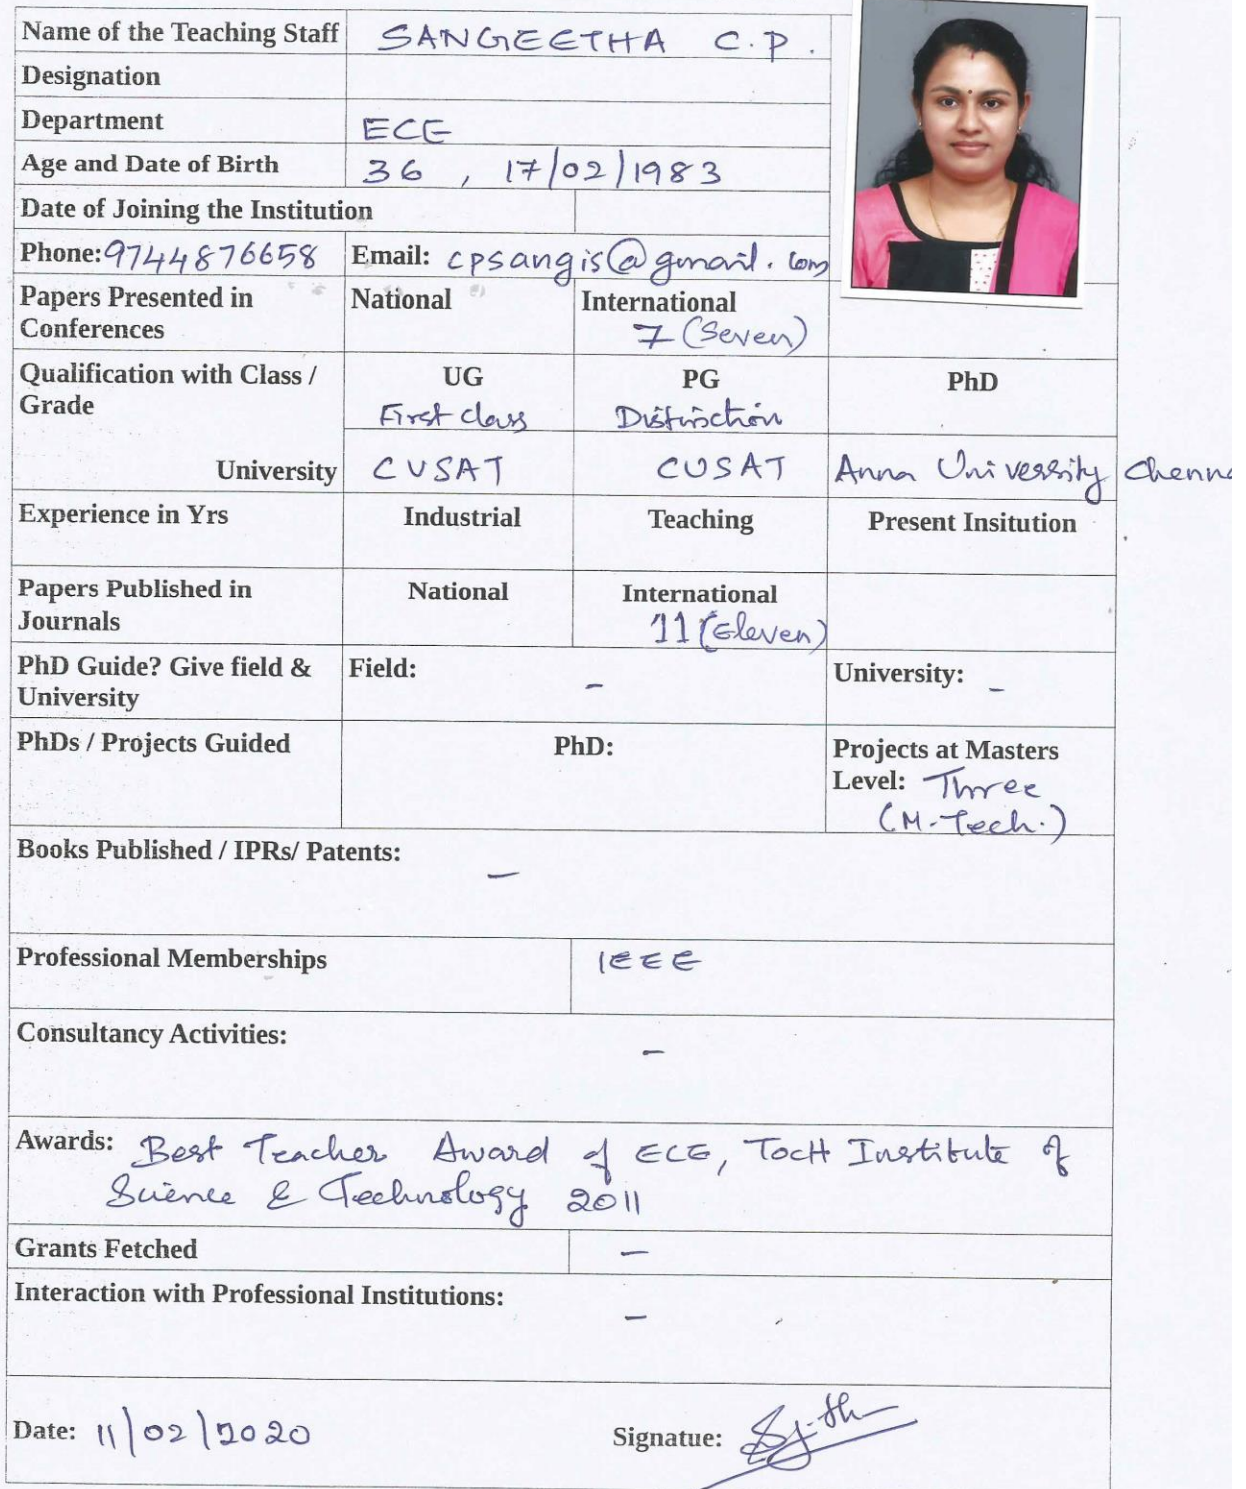 Name of the Teaching Staff SANGEETHA C.P.
Designation
Department ECE
Age and Date of Birth 36 , 17/02/1983
Date of Joining the Institution
Phone: 9744876658 Email: cpsangis@gmail.com
Papers Presented in National International
Conferences 7 (Seven)
Qualification with Class / UG PG PhD
Grade First class Distinction
University CUSAT CUSAT Anna University Chenna
Experience in Yrs Industrial Teaching Present Insitution
Papers Published in National International
Journals 11 (Eleven)
PhD Guide? Give field & Field: - University: -
University
PhDs / Projects Guided PhD: Projects at Masters
Level: Three
(M.Tech.)
Books Published / IPRs/ Patents:
-
Professional Memberships IEEE
Consultancy Activities:
-
Awards: Best Teacher Award of ECE, TocH Institute of
Science & Technology 2011
Grants Fetched -
Interaction with Professional Institutions:
-
Date: 11/02/2020 Signatue: